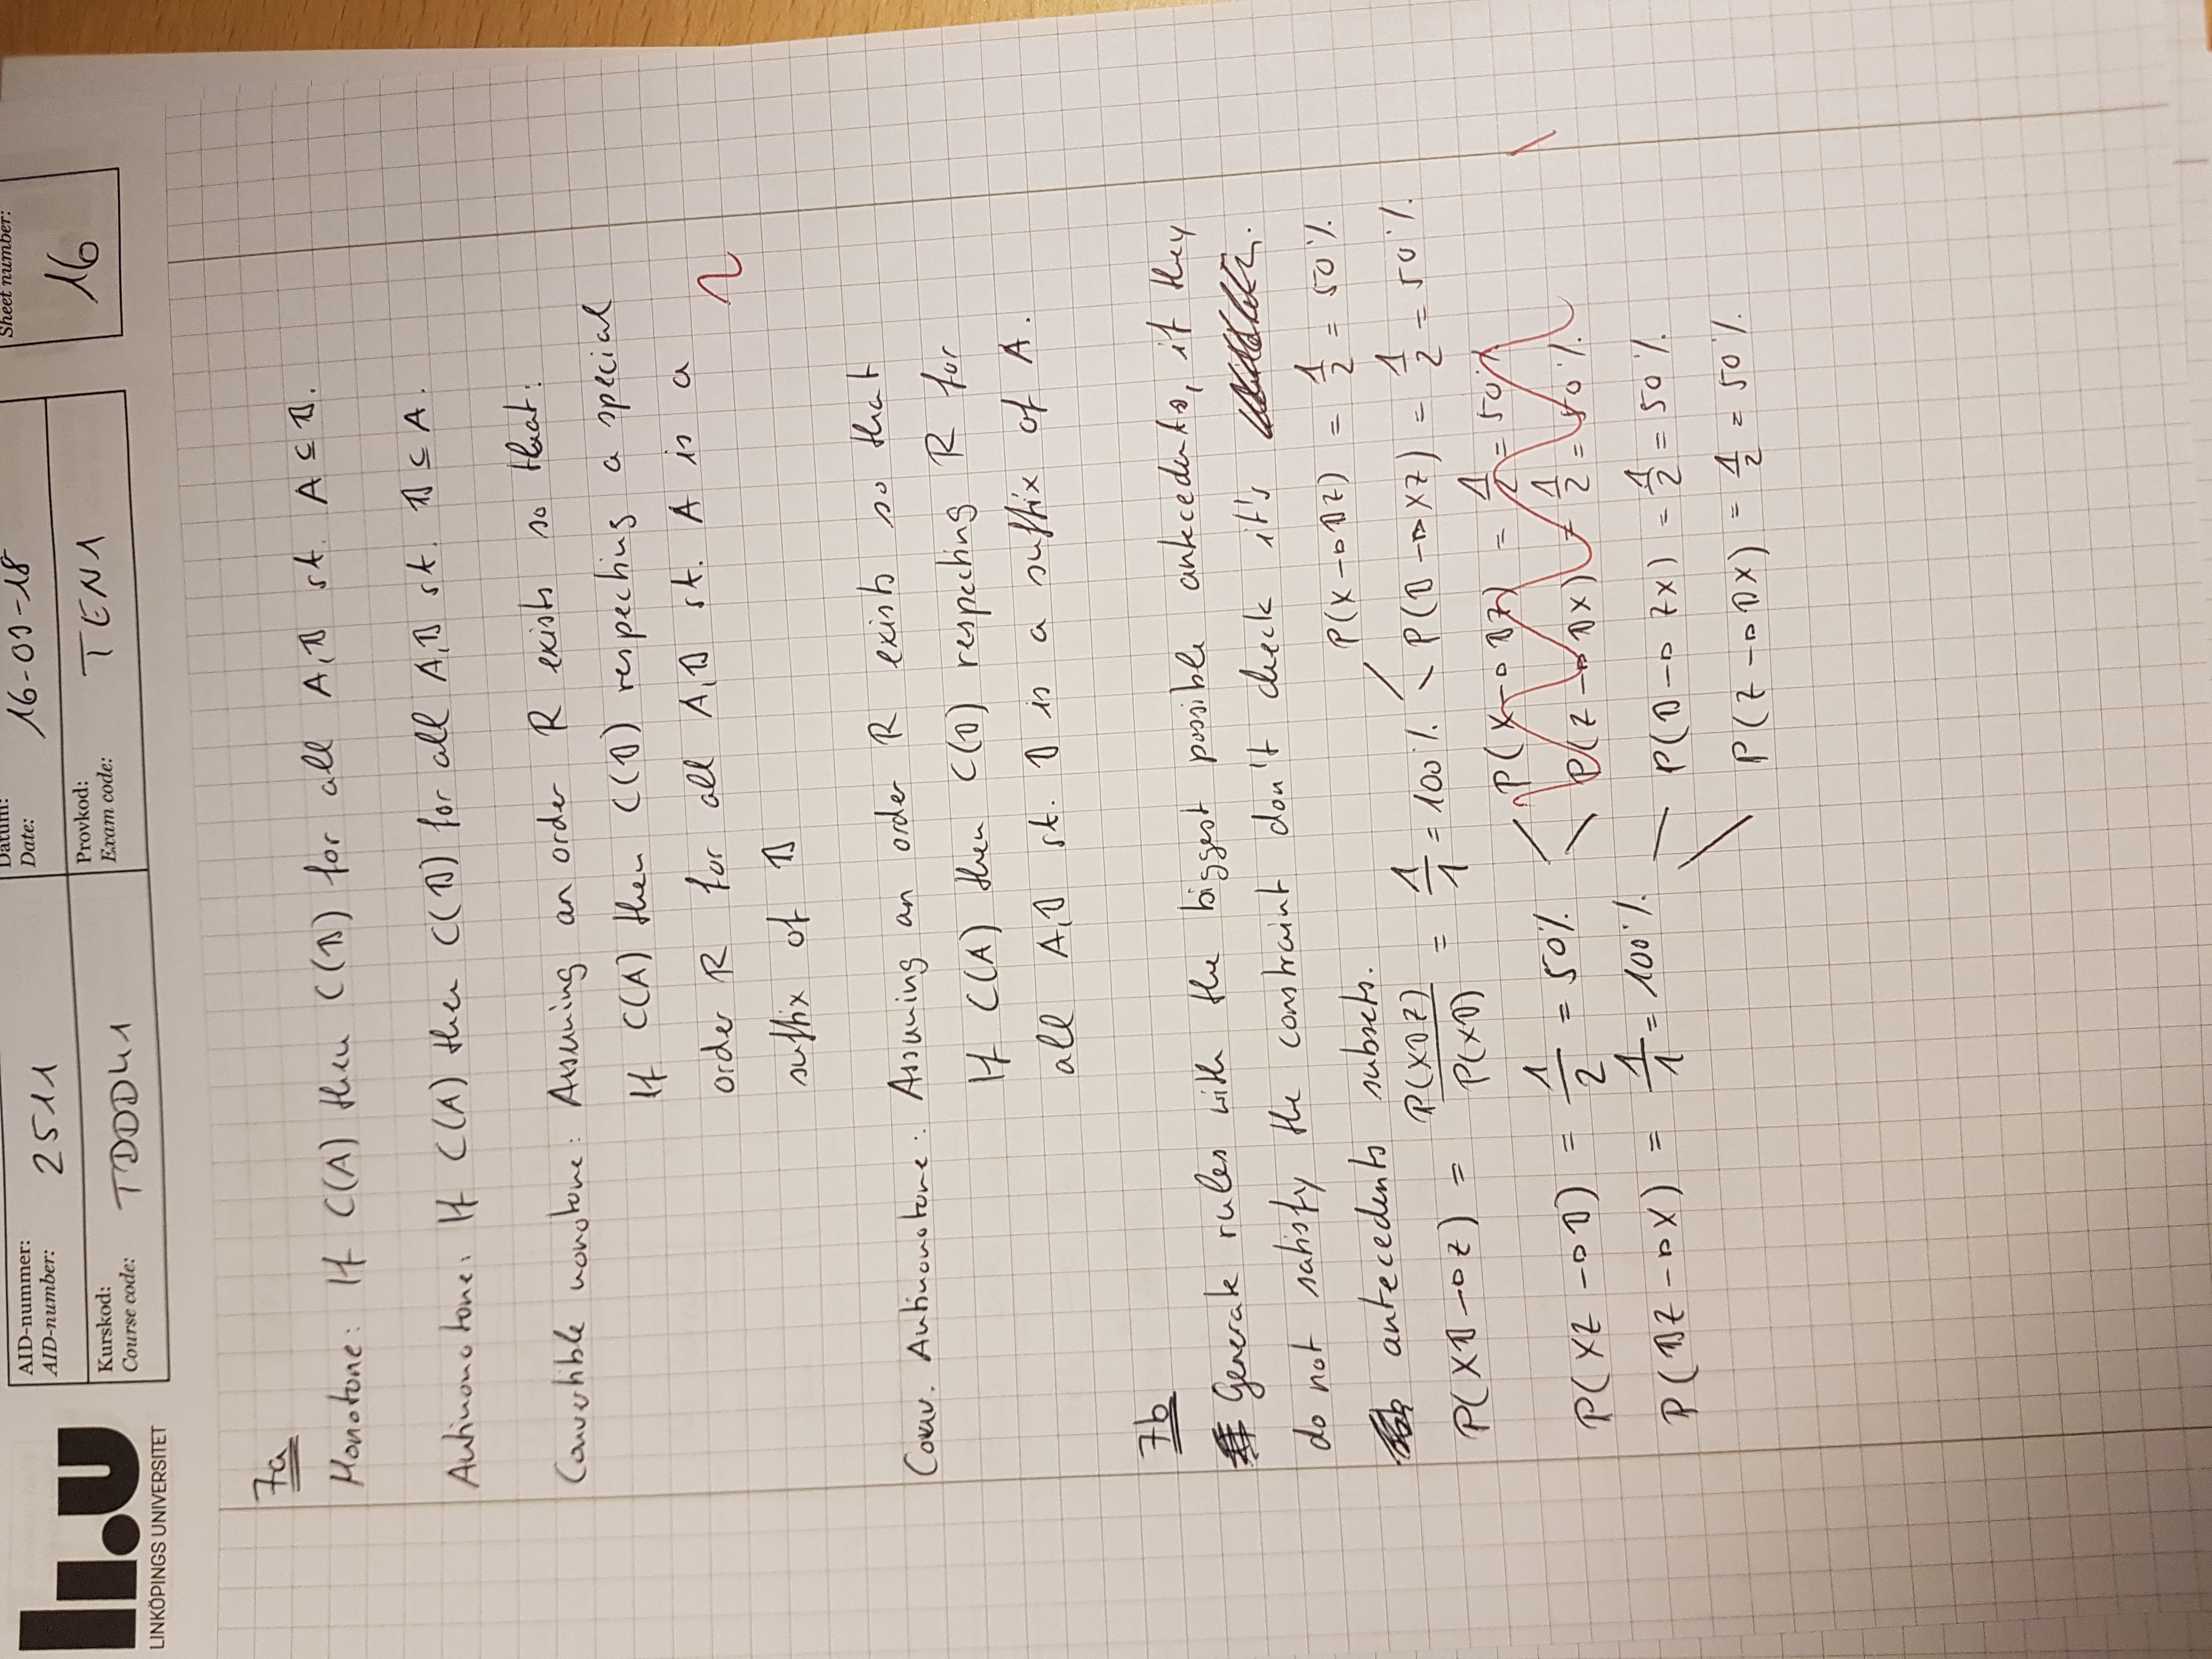 li.u
LINKÖPINGS UNIVERSITET
AID-nummer:
AID-number: 2511
Datum:
Date: 16-03-18
Sheet number:
16
Kurskod:
Course code: TDDD41
Provkod:
Exam code: TEN1
7a
Monotone: If C(A) then C(B) for all A,B st. A ⊆ B.
Antimonotone: If C(A) then C(B) for all A,B st. B ⊆ A.
Convertible monotone: Assuming an order R exists so that:
If C(A) then C(B) respecting a special
order R for all A,B st. A is a
suffix of B
2
Conv. Antimonotone: Assuming an order R exists so that
If C(A) then C(B) respecting R for
all A,B st. B is a suffix of A.
7b
Generate rules with the biggest possible antecedents, if they
do not satisfy the constraint don't check it's
antecedents subsets.
P(XB→Z) = P(XBZ)/P(XB) = 1/1 = 100%
P(X→BZ) = 1/2 = 50%
P(B→XZ) = 1/2 = 50%
P(XZ→B) = 1/2 = 50%
P(X→BZ) = 1/2 = 50%
P(Z→BX) = 1/2 = 50%
P(BZ→X) = 1/1 = 100%
P(B→ZX) = 1/2 = 50%
P(Z→BX) = 1/2 = 50%